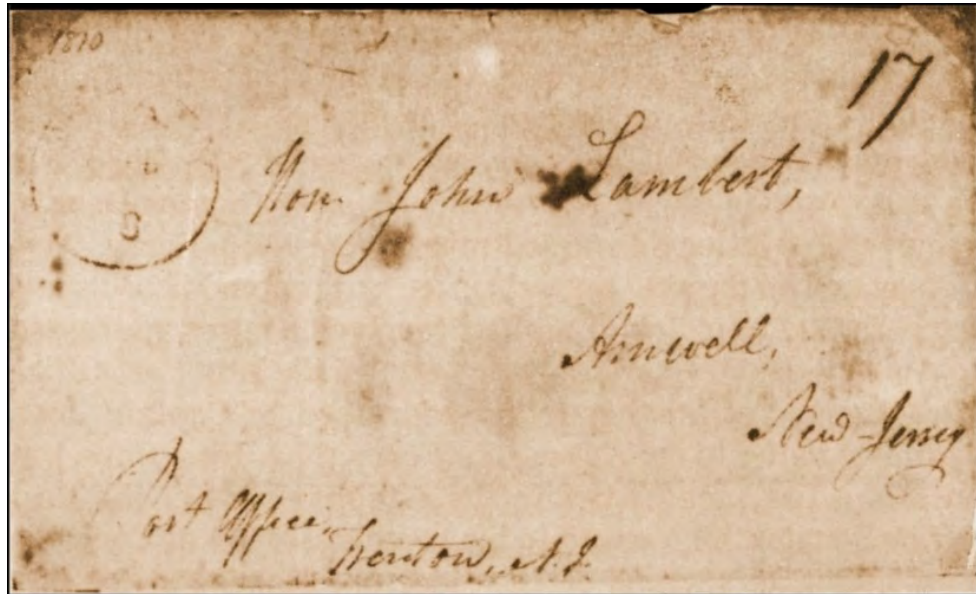 1810
17
8
Hon. John Lambert,
Amwell,
New-Jersey
Post Office,
Trenton, N.J.